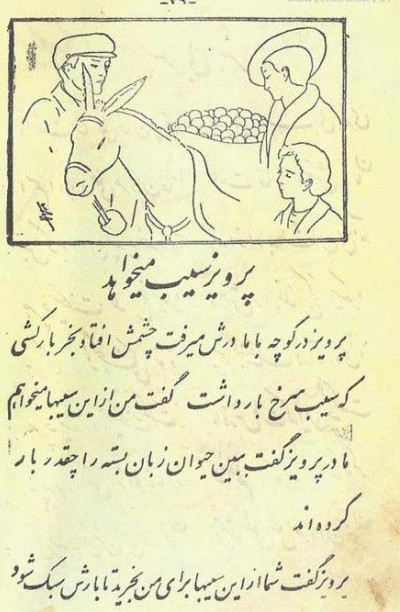 -۲۹-
پرویز سیب میخواهد
پرویز در کوچه با مادرش میرفت چشمش افتاد بخر بارکشی
که سیب سرخ بار داشت گفت من از این سیبها میخواهم
مادر پرویز گفت ببین حیوان زبان بسته را چقدر بار
کرده اند
پرویز گفت شما از این سیبها برای من بخرید تا بارش سبک شود